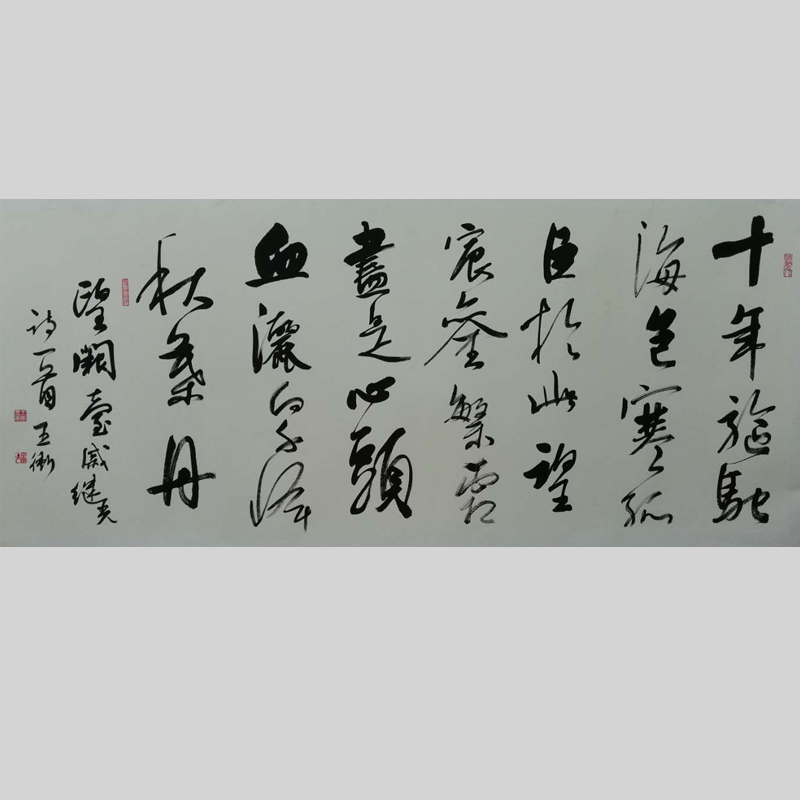 十年驅馳
海色寒孤
臣於此望
宸鑾繁霜
盡是心頭
血灑向千峰
秋葉丹
望闕臺戚継光
詩一首 王